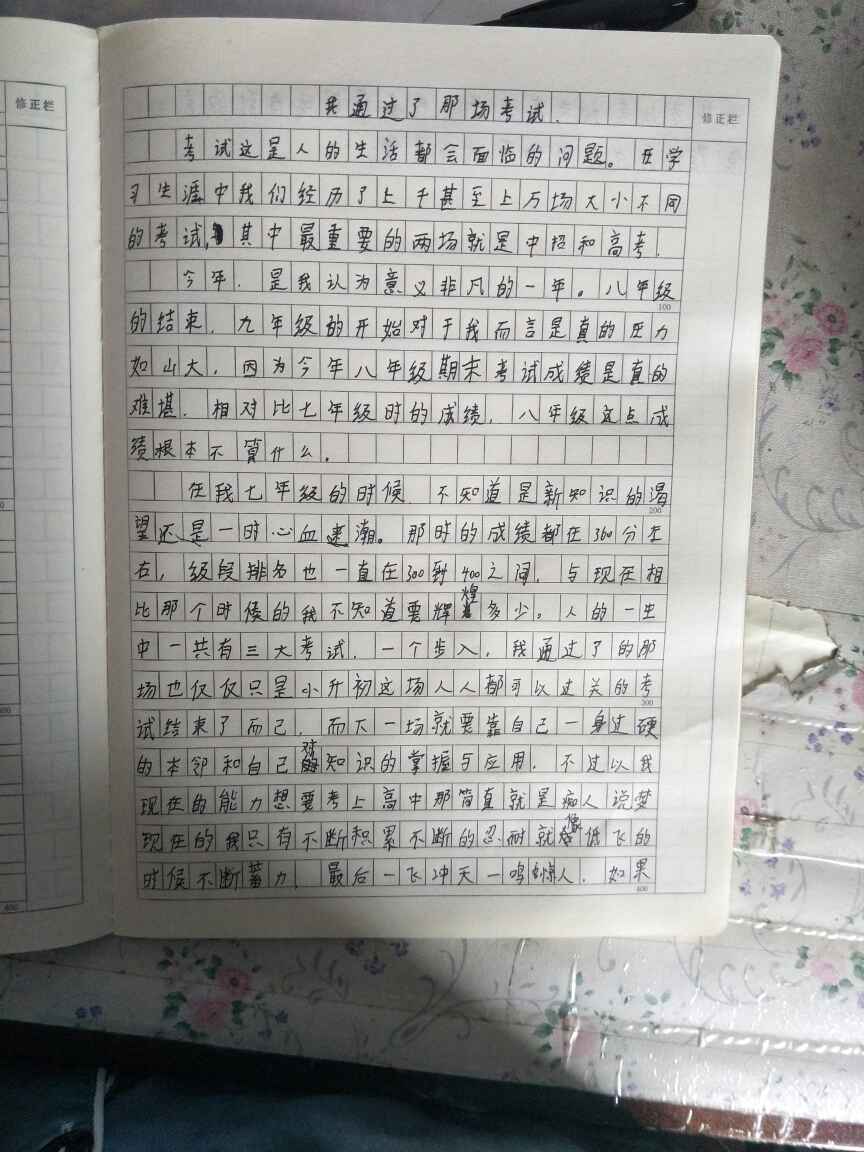 修正栏
修正栏
我通过了那场考试.
考试这是人的生活都会面临的问题。在学
习生涯中我们经历了上千甚至上万场大小不同
的考试,其中最重要的两场就是中招和高考.
今年.是我认为意义非凡的一年。八年级
100
的结束.九年级的开始对于我而言是真的压力
如山大.因为今年八年级期末考试成绩是真的
难堪.相对比七年级时的成绩.八年级这点成
绩根本不算什么.
在我七年级的时候.不知道是新知识的渴
200
望还是一时心血来潮。那时的成绩都在360分左
右,级段排名也一直在300到400之间.与现在相
比那个时候的我不知道要辉煌多少。人的一生
中一共有三大考试.一个步入.我通过了的那
场也仅仅只是小升初这场人人都可以过关的考
300
试结束了而已.而下一场就要靠自己一身过硬
的本邻和自己对知识的掌握与应用.不过以我
现在的能力想要考上高中那简直就是痴人说梦
现在的我只有不断积累不断的忍耐就像低飞的
时候不断蓄力.最后一飞冲天一鸣惊人.如果
400
400